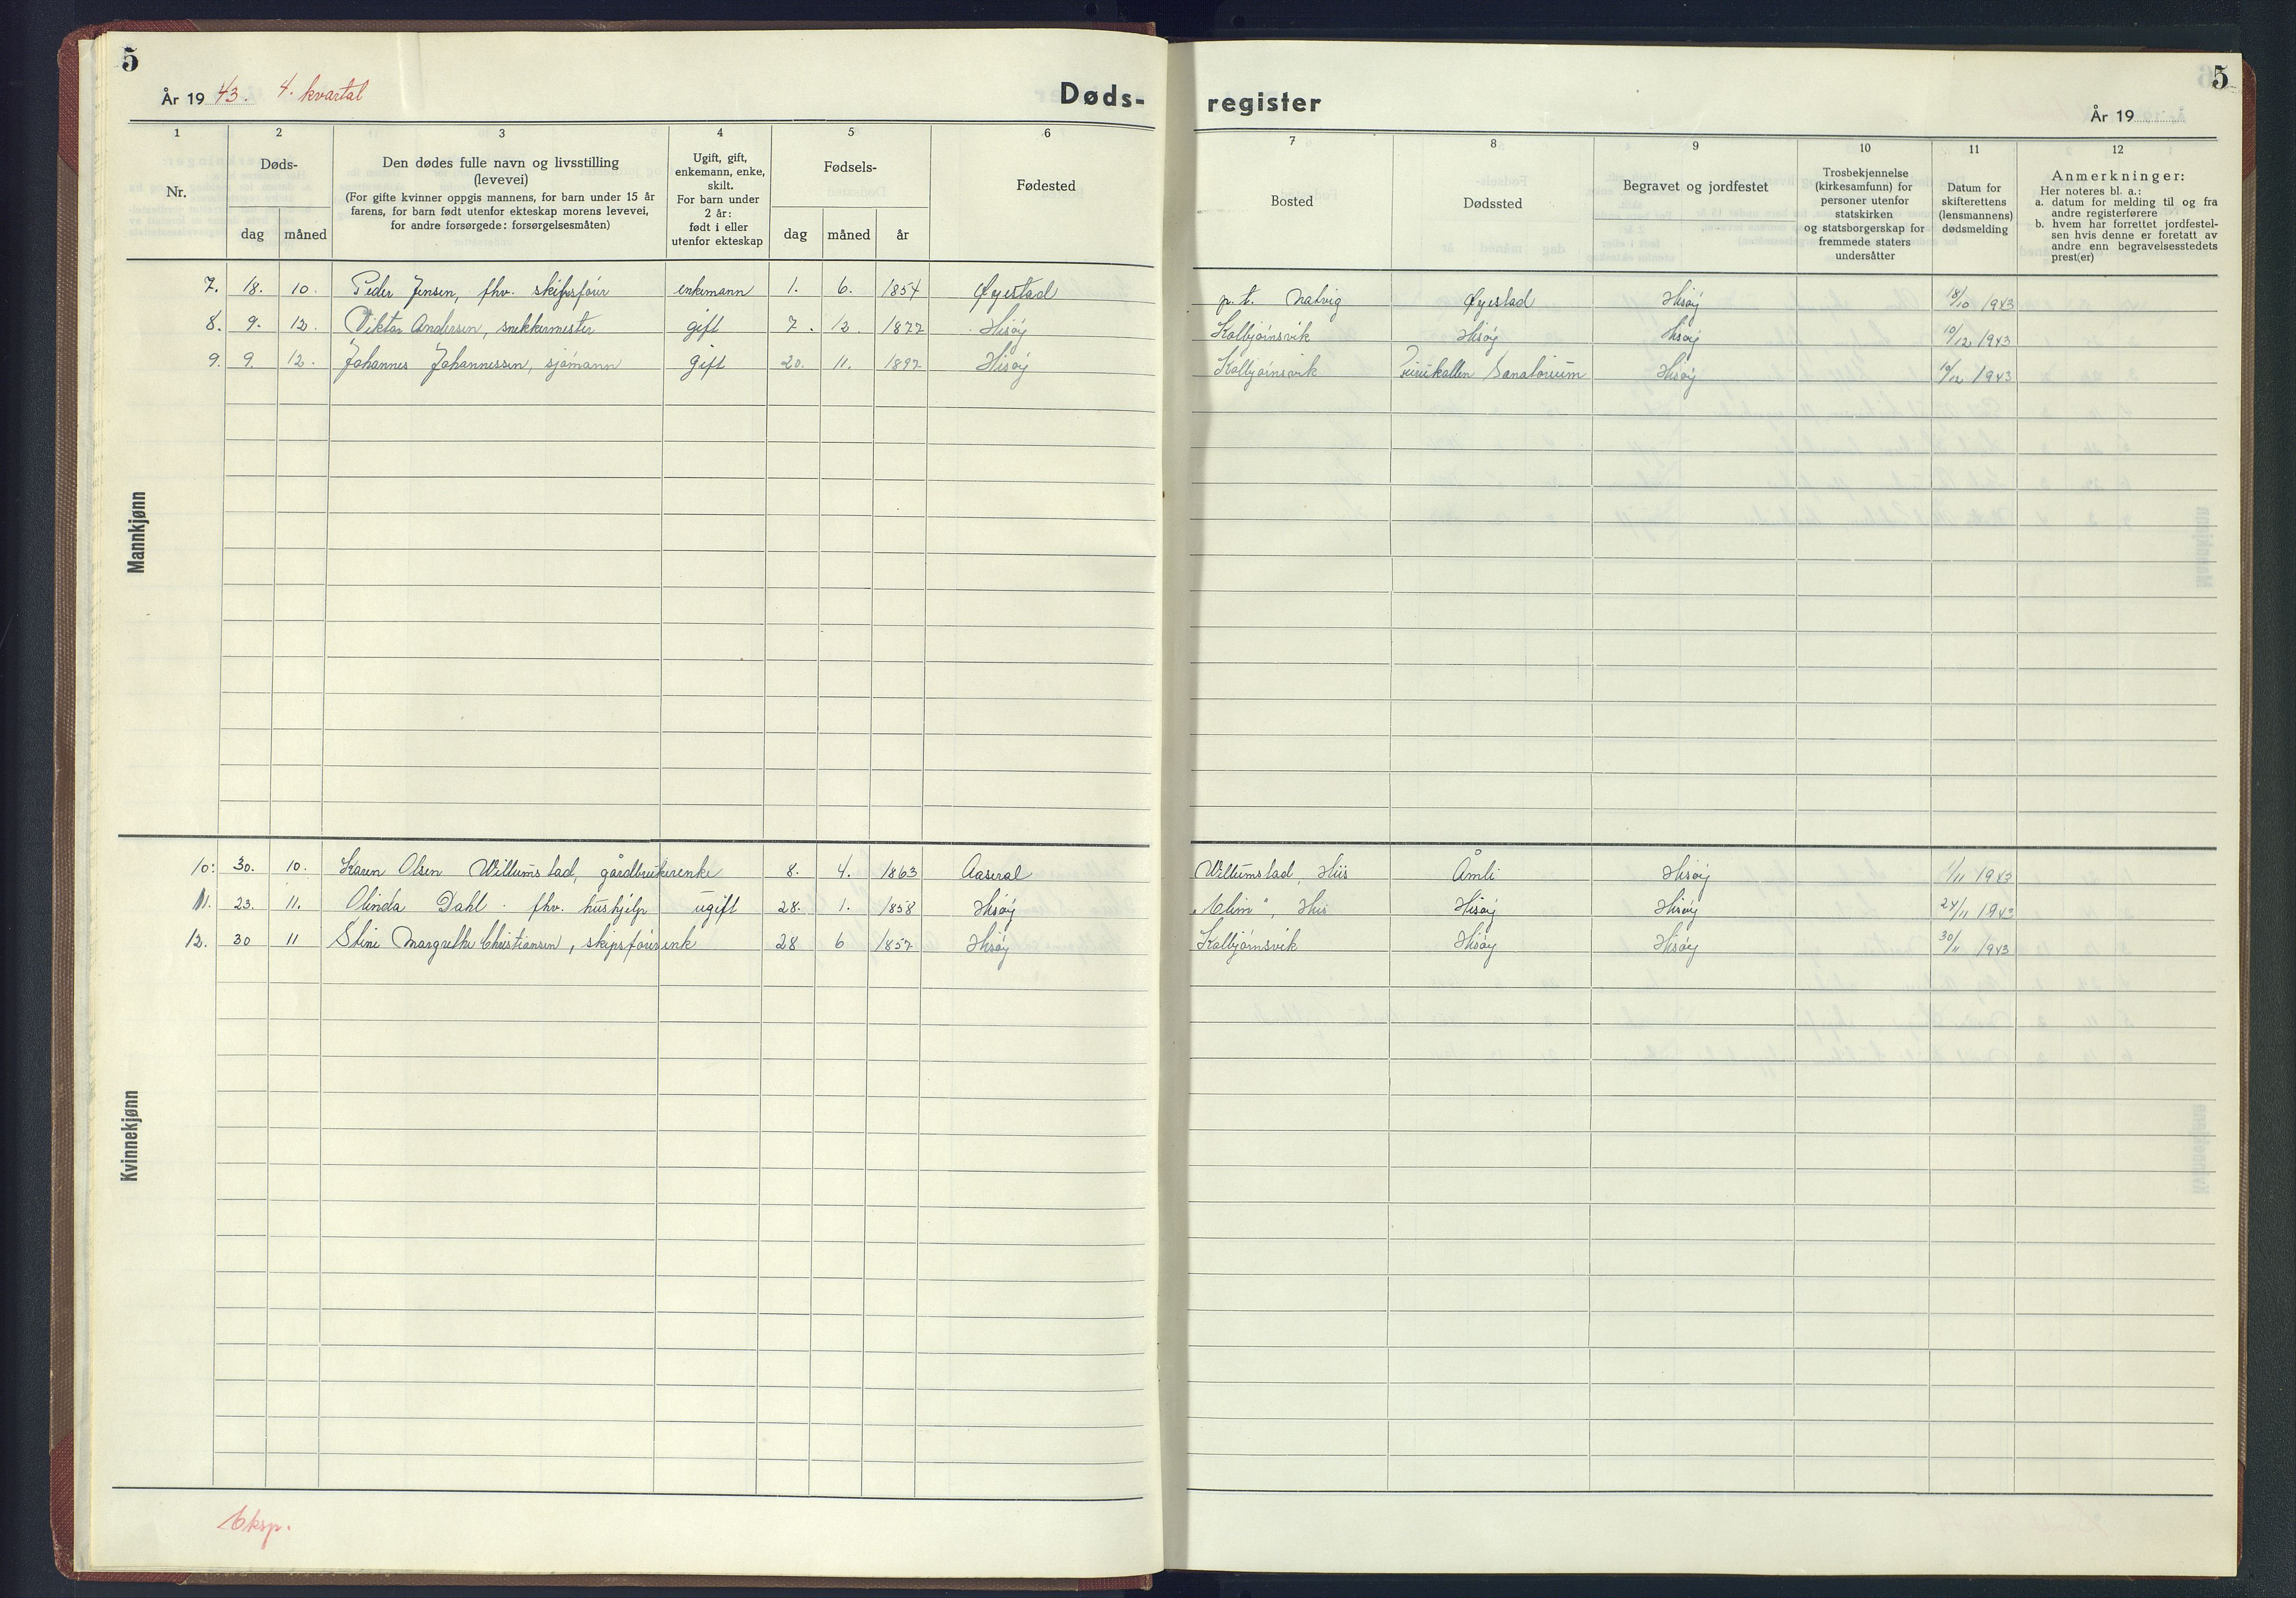 5
År 1943. 4. kvartal
Døds-
1 2 3 4 5 6
Nr.
Døds-
dag måned
Den dødes fulle navn og livsstilling
(levevei)
(For gifte kvinner oppgis mannens, for barn under 15 år
farens, for barn født utenfor ekteskap morens levevei,
for andre forsørgede: forsørgelsesmåten)
Ugift, gift,
enkemann, enke,
skilt.
For barn under
2 år:
født i eller
utenfor ekteskap
Fødsels-
dag måned år
Fødested
Mannkjønn
7. 18. 10. Peder Jensen, fhv. skipsfører enkemann 1. 6. 1854 Øyestad
8. 9. 12. Viktor Andersen, snekkermester gift 7. 12. 1877 Hisøy
9. 9. 12. Johannes Johannessen, sjømann gift 20. 11. 1897 Hisøy
Kvinnekjønn
10. 30. 10. Karen Olsen Willumstad, gårdbrukerenke 8. 4. 1863 Aaseral
11. 23. 11. Olinda Dahl fhv. hushjelp ugift 28. 1. 1858 Hisøy
12. 30 11 Stine Margrethe Christiansen, skipsførerenk 28 6 1857 Hisøy
Eksp.
5
register
År 19
7 8 9 10 11 12
Bosted
Dødssted
Begravet og jordfestet
Trosbekjennelse
(kirkesamfunn) for
personer utenfor
statskirken
og statsborgerskap for
fremmede staters
undersåtter
Datum for
skifterettens
(lensmannens)
dødsmelding
Anmerkninger:
Her noteres bl. a.:
a. datum for melding til og fra
andre registerførere
b. hvem har forrettet jordfestel-
sen hvis denne er foretatt av
andre enn begravelsesstedets
prest(er)
p. t. Natvig Øyestad Hisøy 18/10 1943
Kolbjørnsvik Hisøy Hisøy 10/12 1943
Kolbjørnsvik Sanatorium Hisøy /12 1943
Willumstad, His Åmli Hisøy 1/11 1943
"Elim", His Hisøy Hisøy 24/11 1943
Kolbjørnsvik Hisøy Hisøy 30/11 1943